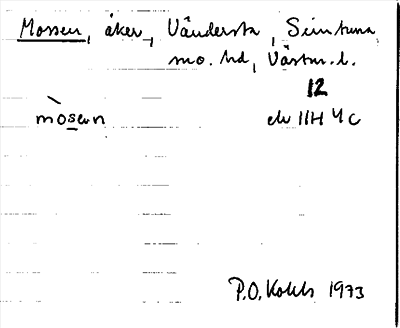 Mossen, åker, Vändersta, Simtuna
sn. hd, Västm. l.
12
mòsen
ek 11H 4c
P.O. Kolsb 1973